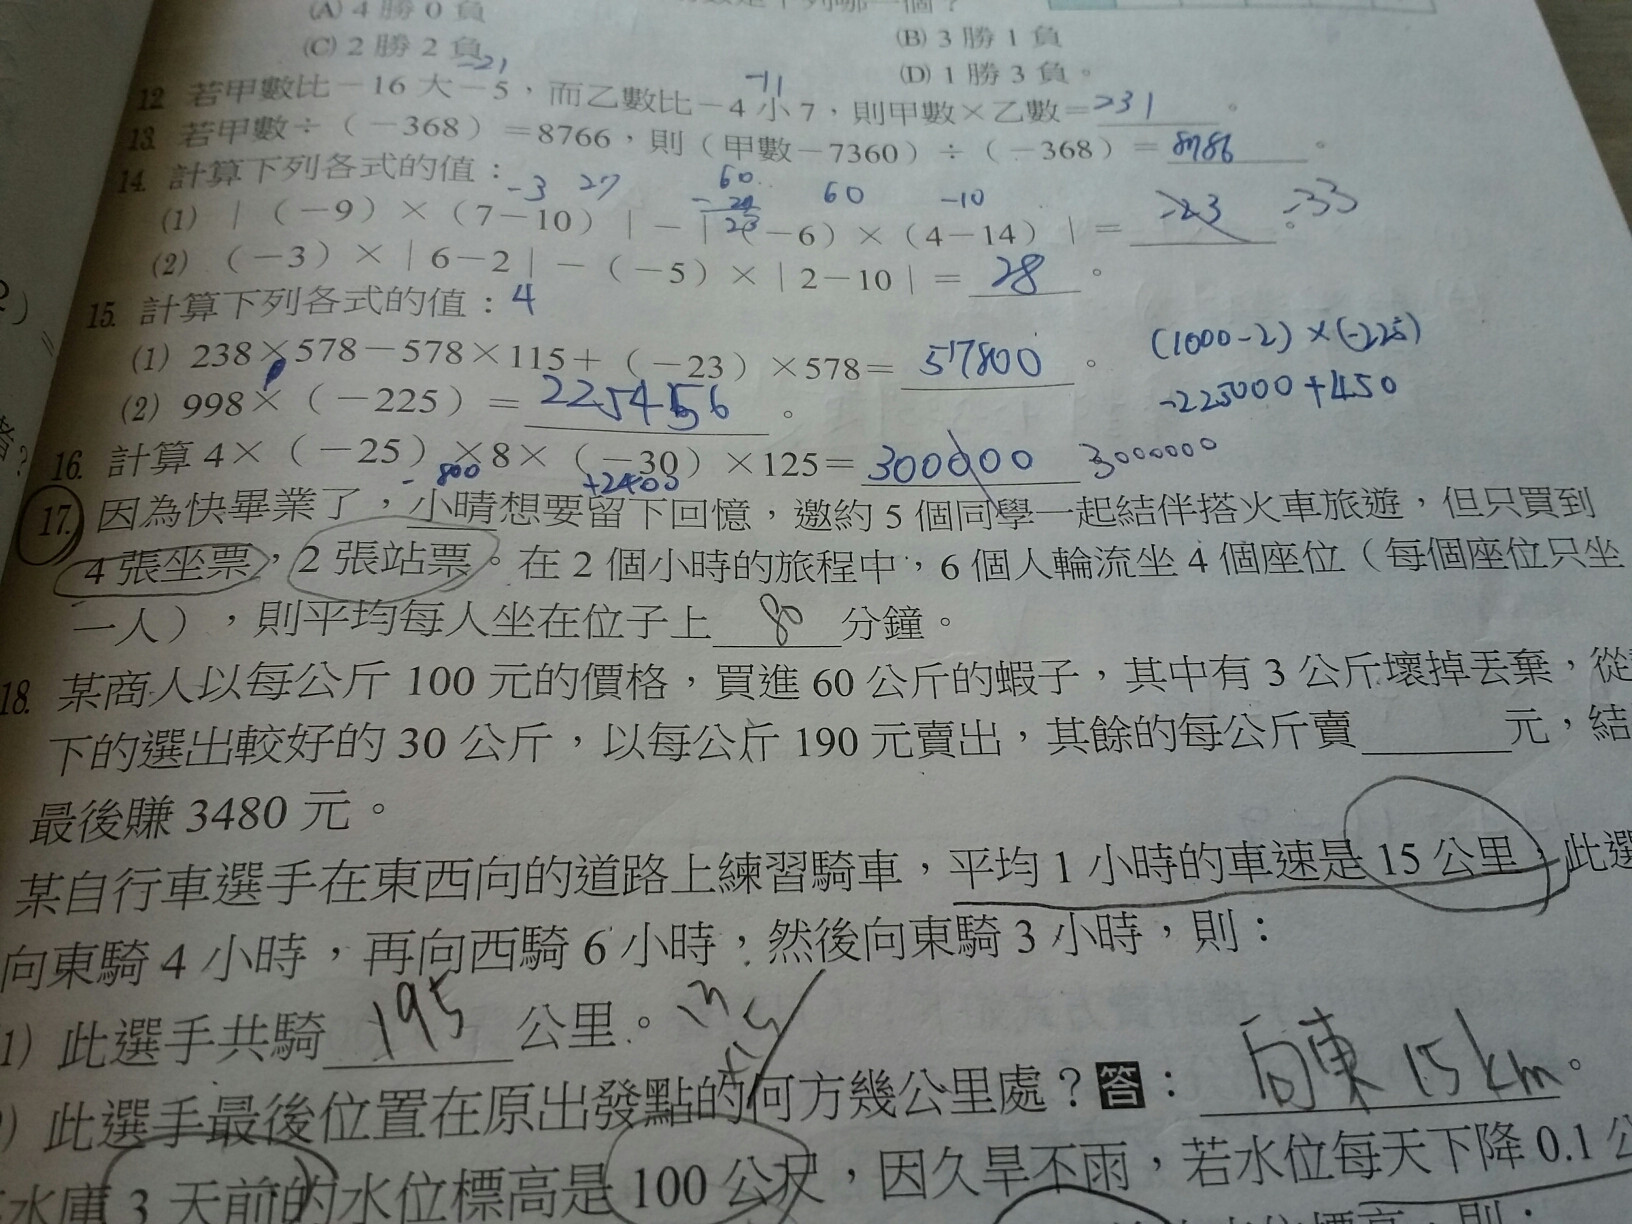 (A) 4 勝 0 負
(B) 3 勝 1 負
(C) 2 勝 2 負
(D) 1 勝 3 負。
-21 -11
12. 若甲數比－16 大－5，而乙數比－4 小 7，則甲數×乙數＝231。
13. 若甲數÷（－368）＝8766，則（甲數－7360）÷（－368）＝8786。
14. 計算下列各式的值：
-3 27 60 60 -10
(1) ｜（－9）×（7－10）｜－｜（－6）×（4－14）｜＝-23。-33
(2) （－3）×｜6－2｜－（－5）×｜2－10｜＝28。
15. 計算下列各式的值：4
(1) 238×578－578×115＋（－23）×578＝57800。
(1000-2)×(-225)
(2) 998×（－225）＝。
-225000+450
16. 計算 4×（－25）×8×（－30）×125＝300000 3000000
-800 +2400
17. 因為快畢業了，小晴想要留下回憶，邀約 5 個同學一起結伴搭火車旅遊，但只買到
4 張坐票，2 張站票。在 2 個小時的旅程中，6 個人輪流坐 4 個座位（每個座位只坐
一人），則平均每人坐在位子上 80 分鐘。
18. 某商人以每公斤 100 元的價格，買進 60 公斤的蝦子，其中有 3 公斤壞掉丟棄，從
下的選出較好的 30 公斤，以每公斤 190 元賣出，其餘的每公斤賣元，結
最後賺 3480 元。
某自行車選手在東西向的道路上練習騎車，平均 1 小時的車速是 15 公里，此選
向東騎 4 小時，再向西騎 6 小時，然後向東騎 3 小時，則：
1) 此選手共騎 195 公里。
) 此選手最後位置在原出發點的何方幾公里處？答：向東 15km。
水庫 3 天前的水位標高是 100 公尺，因久旱不雨，若水位每天下降 0.1 公